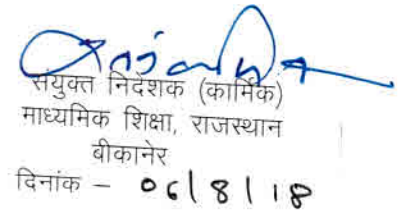 संयुक्त निदेशक (कार्मिक)
माध्यमिक शिक्षा, राजस्थान
बीकानेर
दिनांक – 06/8/18